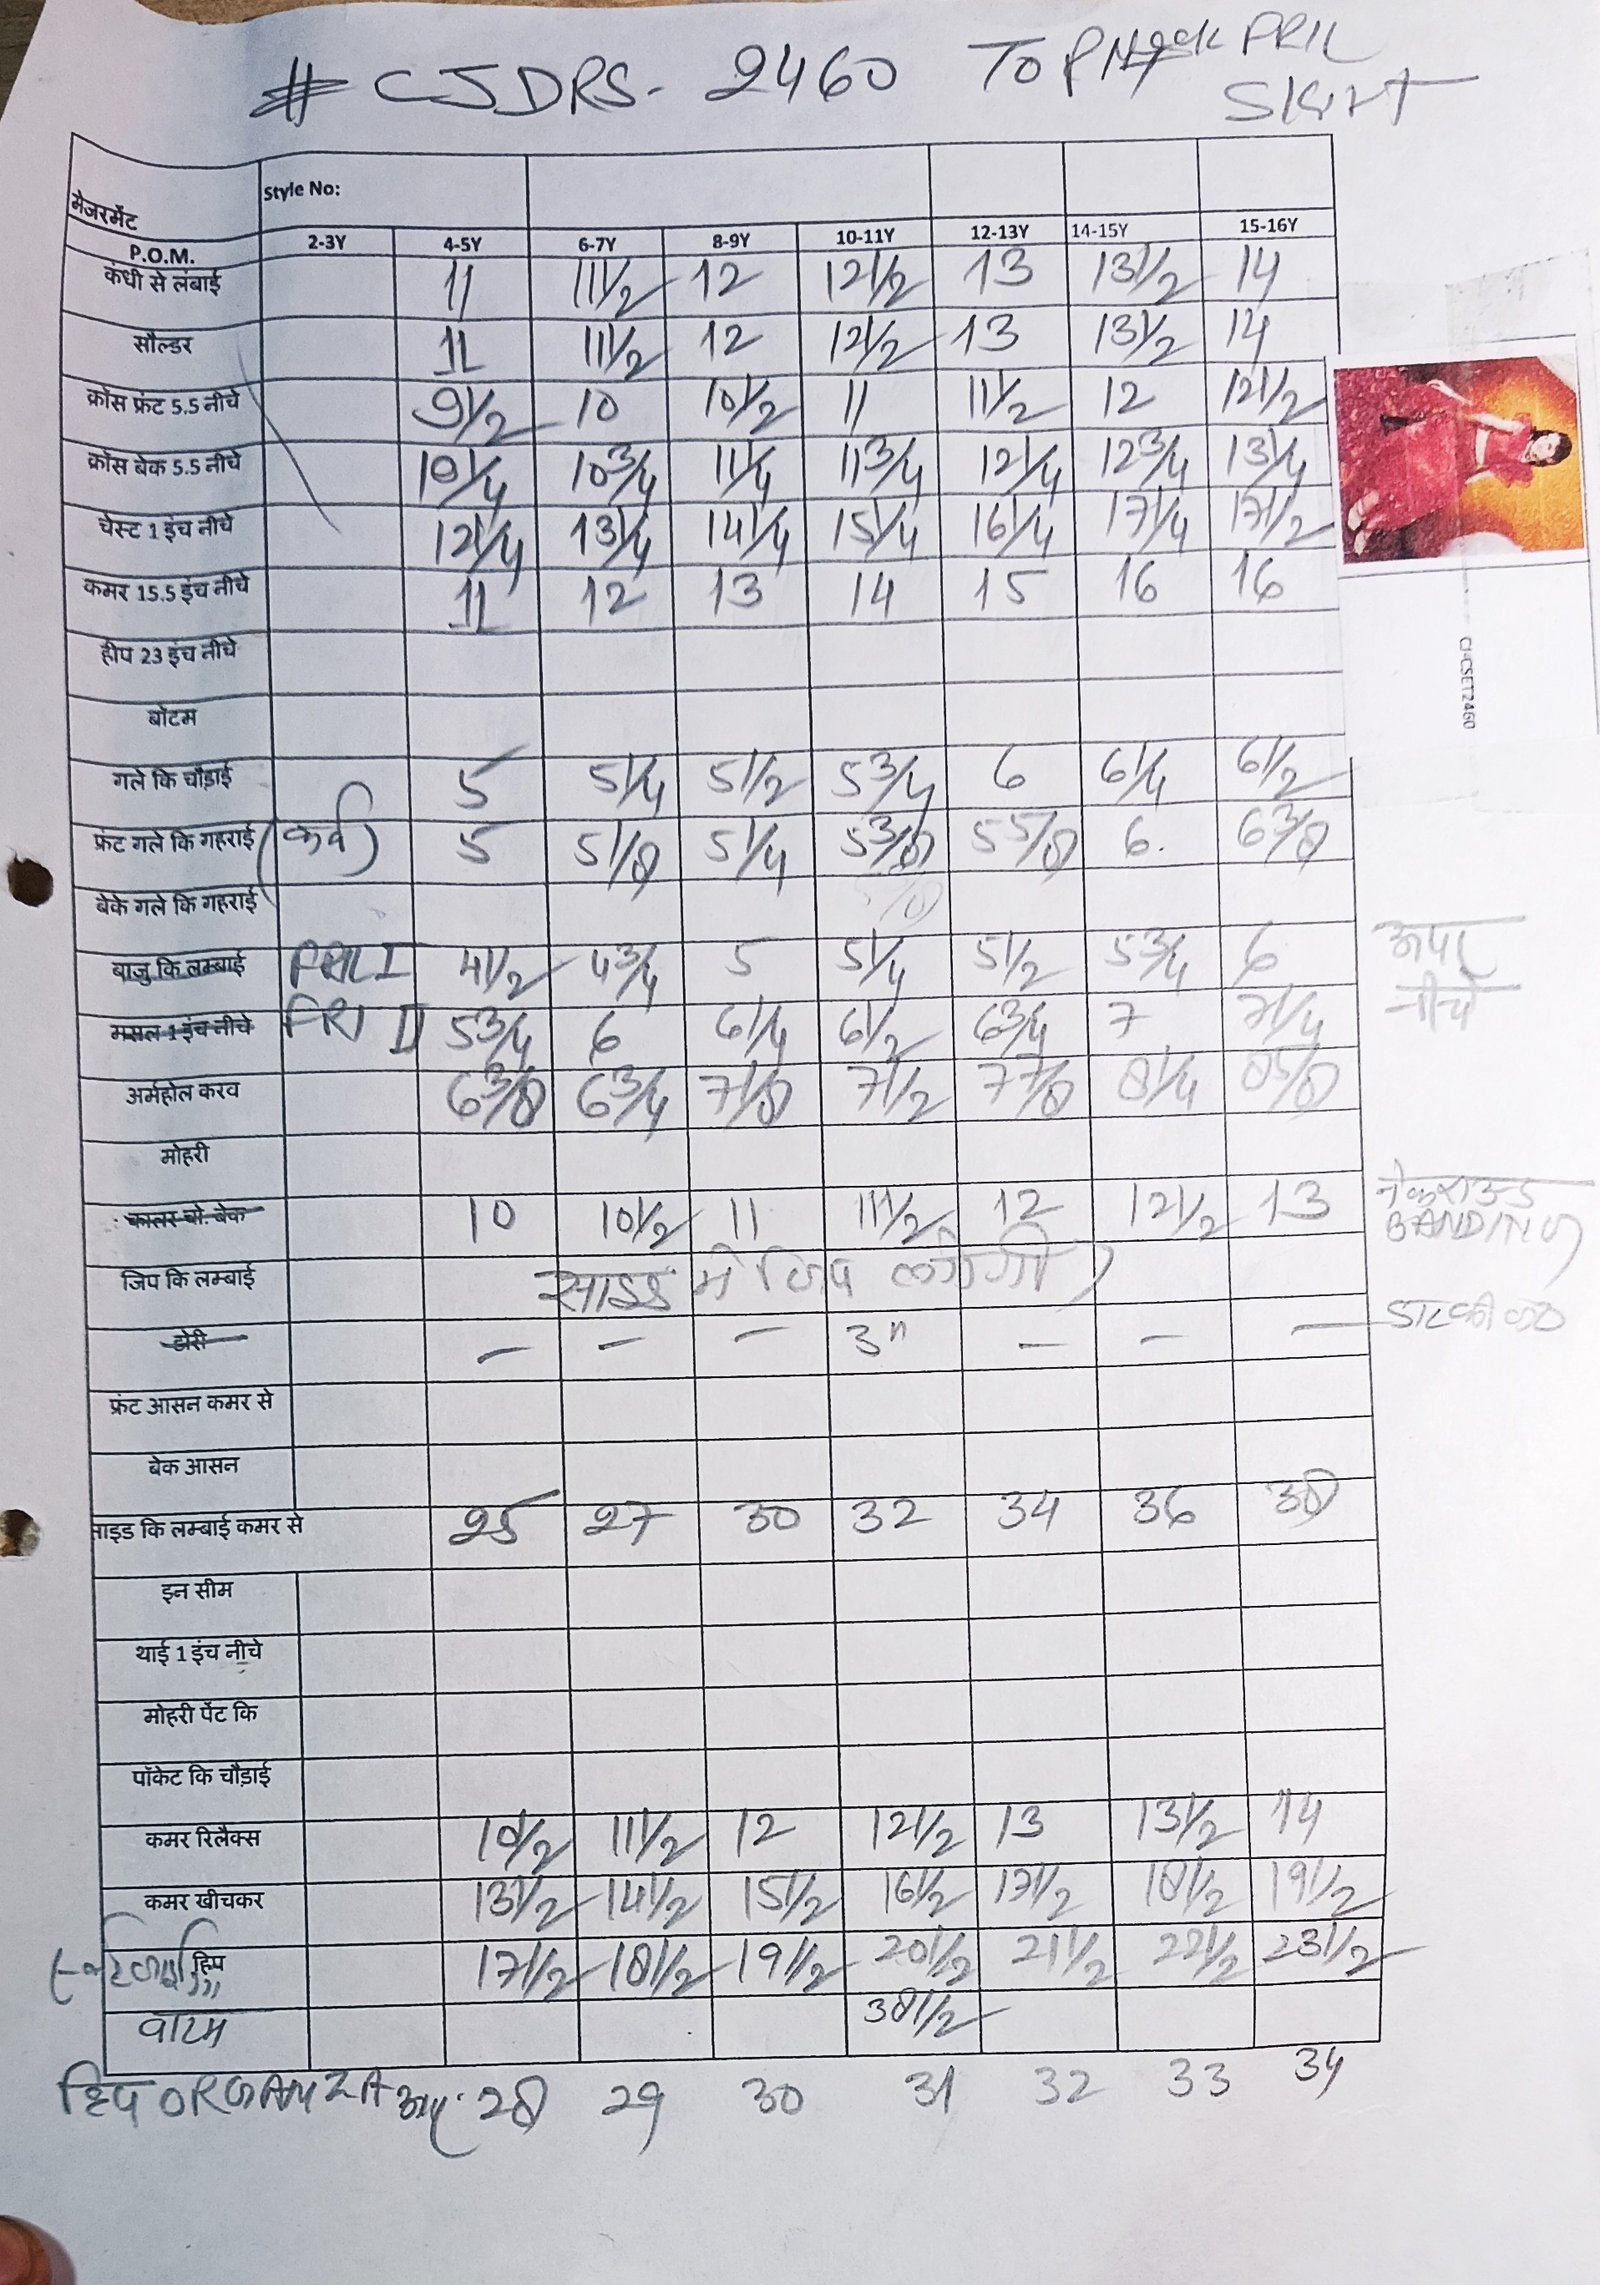 # CJDRS- 2460 TOP
SKIRT
मेजरमेंट Style No:
P.O.M. 2-3Y 4-5Y 6-7Y 8-9Y 10-11Y 12-13Y 14-15Y 15-16Y
कंधी से लंबाई 11 11 1/2 12 12 1/2 13 13 1/2 14
सौल्डर 11 11 1/2 12 12 1/2 13 13 1/2 14
क्रॉस फ्रंट 5.5 नीचे 9 1/2 10 10 1/2 11 11 1/2 12 12 1/2
क्रॉस बेक 5.5 नीचे 10 1/4 10 3/4 11 1/4 11 3/4 12 1/4 12 3/4 13 1/4
चेस्ट 1 इंच नीचे 12 1/4 13 1/4 14 1/4 15 1/4 16 1/4 17 1/4 17 1/2
कमर 15.5 इंच नीचे 11 12 13 14 15 16 16
हीप 23 इंच नीचे
CJ-CSET2460
बॉटम
गले कि चौड़ाई 5 5 1/4 5 1/2 5 3/4 6 6 1/4 6 1/2
फ्रंट गले कि गहराई (कर्व) 5 5 1/8 5 1/4 5 3/8 5 5/8 6. 6 3/8
बेके गले कि गहराई
बाजु कि लम्बाई FRIL I 4 1/2 4 3/4 5 5 1/4 5 1/2 5 3/4 6 ऊपर
मसल 1 इंच नीचे FRI II 5 3/4 6 6 1/4 6 1/2 6 3/4 7 7 1/4 नीचे
अर्महोल करव 6 3/8 6 3/4 7 1/8 7 1/2 7 7/8 8 1/4 8 5/8
मोहरी
कालर चो. बेक 10 10 1/2 11 11 1/2 12 12 1/2 13 नेक राउन्ड
BANDING
जिप कि लम्बाई साइड में जिप लगेगी
डोरी - - - 3" - - -
फ्रंट आसन कमर से
बेक आसन
साइड कि लम्बाई कमर से 25 27 30 32 34 36 38
इन सीम
थाई 1 इंच नीचे
मोहरी पेंट कि
पॉकेट कि चौड़ाई
कमर रिलैक्स 10 1/2 11 1/2 12 12 1/2 13 13 1/2 14
कमर खीचकर 13 1/2 14 1/2 15 1/2 16 1/2 17 1/2 18 1/2 19 1/2
हिप 17 1/2 18 1/2 19 1/2 20 1/2 21 1/2 22 1/2 23 1/2
वाटम 38 1/2
हिप ORGANZA 28 29 30 31 32 33 34